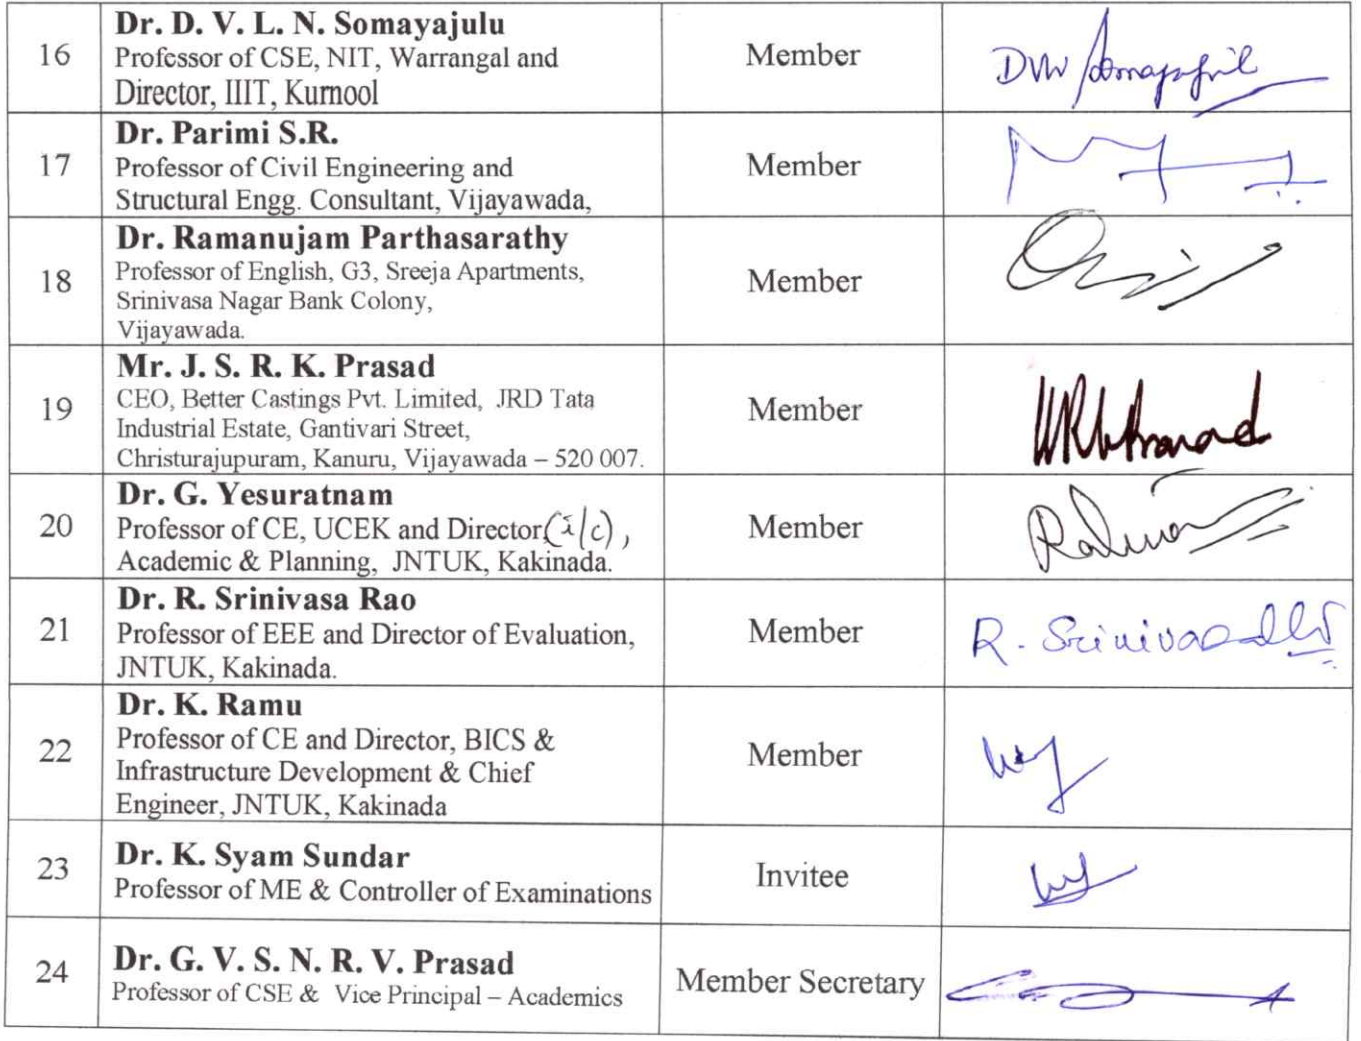 16
Dr. D. V. L. N. Somayajulu
Professor of CSE, NIT, Warrangal and
Director, IIIT, Kurnool
Member
17
Dr. Parimi S.R.
Professor of Civil Engineering and
Structural Engg. Consultant, Vijayawada,
Member
18
Dr. Ramanujam Parthasarathy
Professor of English, G3, Sreeja Apartments,
Srinivasa Nagar Bank Colony,
Vijayawada.
Member
19
Mr. J. S. R. K. Prasad
CEO, Better Castings Pvt. Limited, JRD Tata
Industrial Estate, Gantivari Street,
Christurajupuram, Kanuru, Vijayawada – 520 007.
Member
20
Dr. G. Yesuratnam
Professor of CE, UCEK and Director(i/c),
Academic & Planning, JNTUK, Kakinada.
Member
21
Dr. R. Srinivasa Rao
Professor of EEE and Director of Evaluation,
JNTUK, Kakinada.
Member
R. Srinivasa
22
Dr. K. Ramu
Professor of CE and Director, BICS &
Infrastructure Development & Chief
Engineer, JNTUK, Kakinada
Member
23
Dr. K. Syam Sundar
Professor of ME & Controller of Examinations
Invitee
24
Dr. G. V. S. N. R. V. Prasad
Professor of CSE & Vice Principal – Academics
Member Secretary